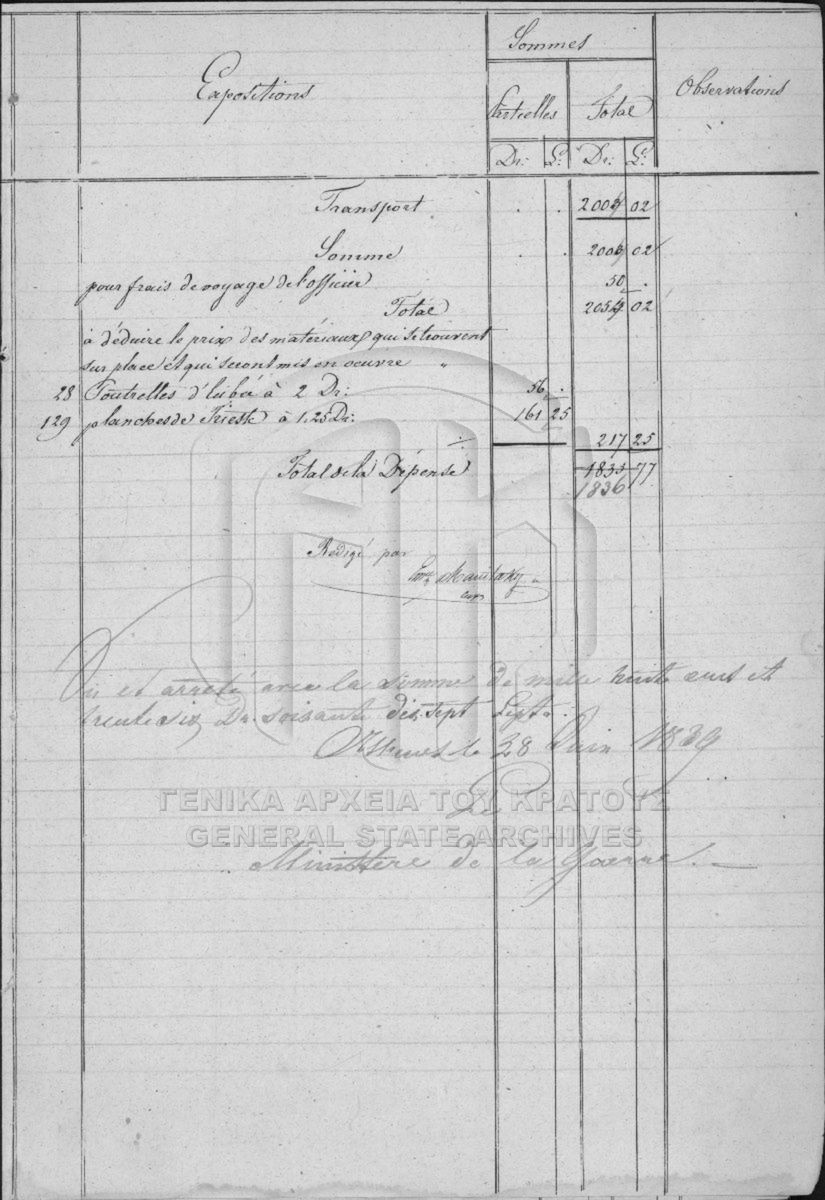 Expositions
Sommes
Partielles Total
Observations
Dr: L: Dr: L:
Transport . . 2004 02
Somme . . 2004 02
pour frais de voyage de l'officier 50 .
Total 2054 02
à déduire le prix des matériaux qui se trouvent
sur place et qui seront mis en oeuvre "
28 Poutrelles d'Eubée à 2 Dr: 56 .
129 planches de Trieste à 1,25 Dr: 161 25
217 25
Total de la Dépense 1833 77
1836
Rédigé par
Em. Manitaky
Vu et arrêté avec la somme de mille huit cents et
trente six Dr. soixante dix sept Lept:
Athènes le 28 Juin 1839
Le
Ministère de la Guerre
ΓΕΝΙΚΑ ΑΡΧΕΙΑ ΤΟΥ ΚΡΑΤΟΥΣ
GENERAL STATE ARCHIVES